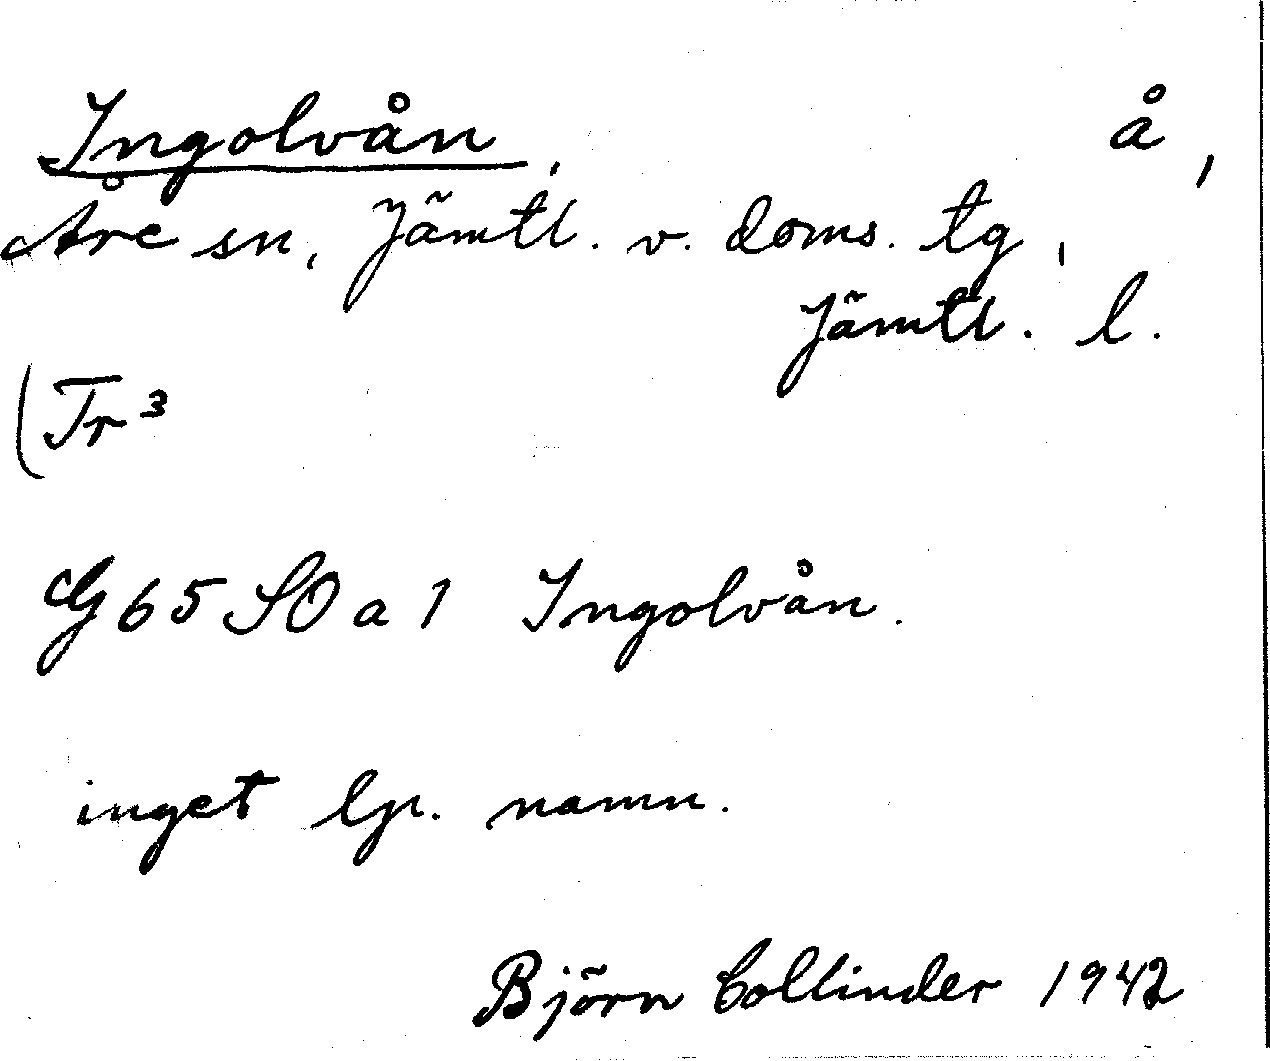 Ingolvån, å,
Åre sn, Jämtl. v. doms. tg,
Jämtl. l.
(Tr³
G 65 SO a 1 Ingolvån.
inget lp. namn.
Björn Collinder 1942